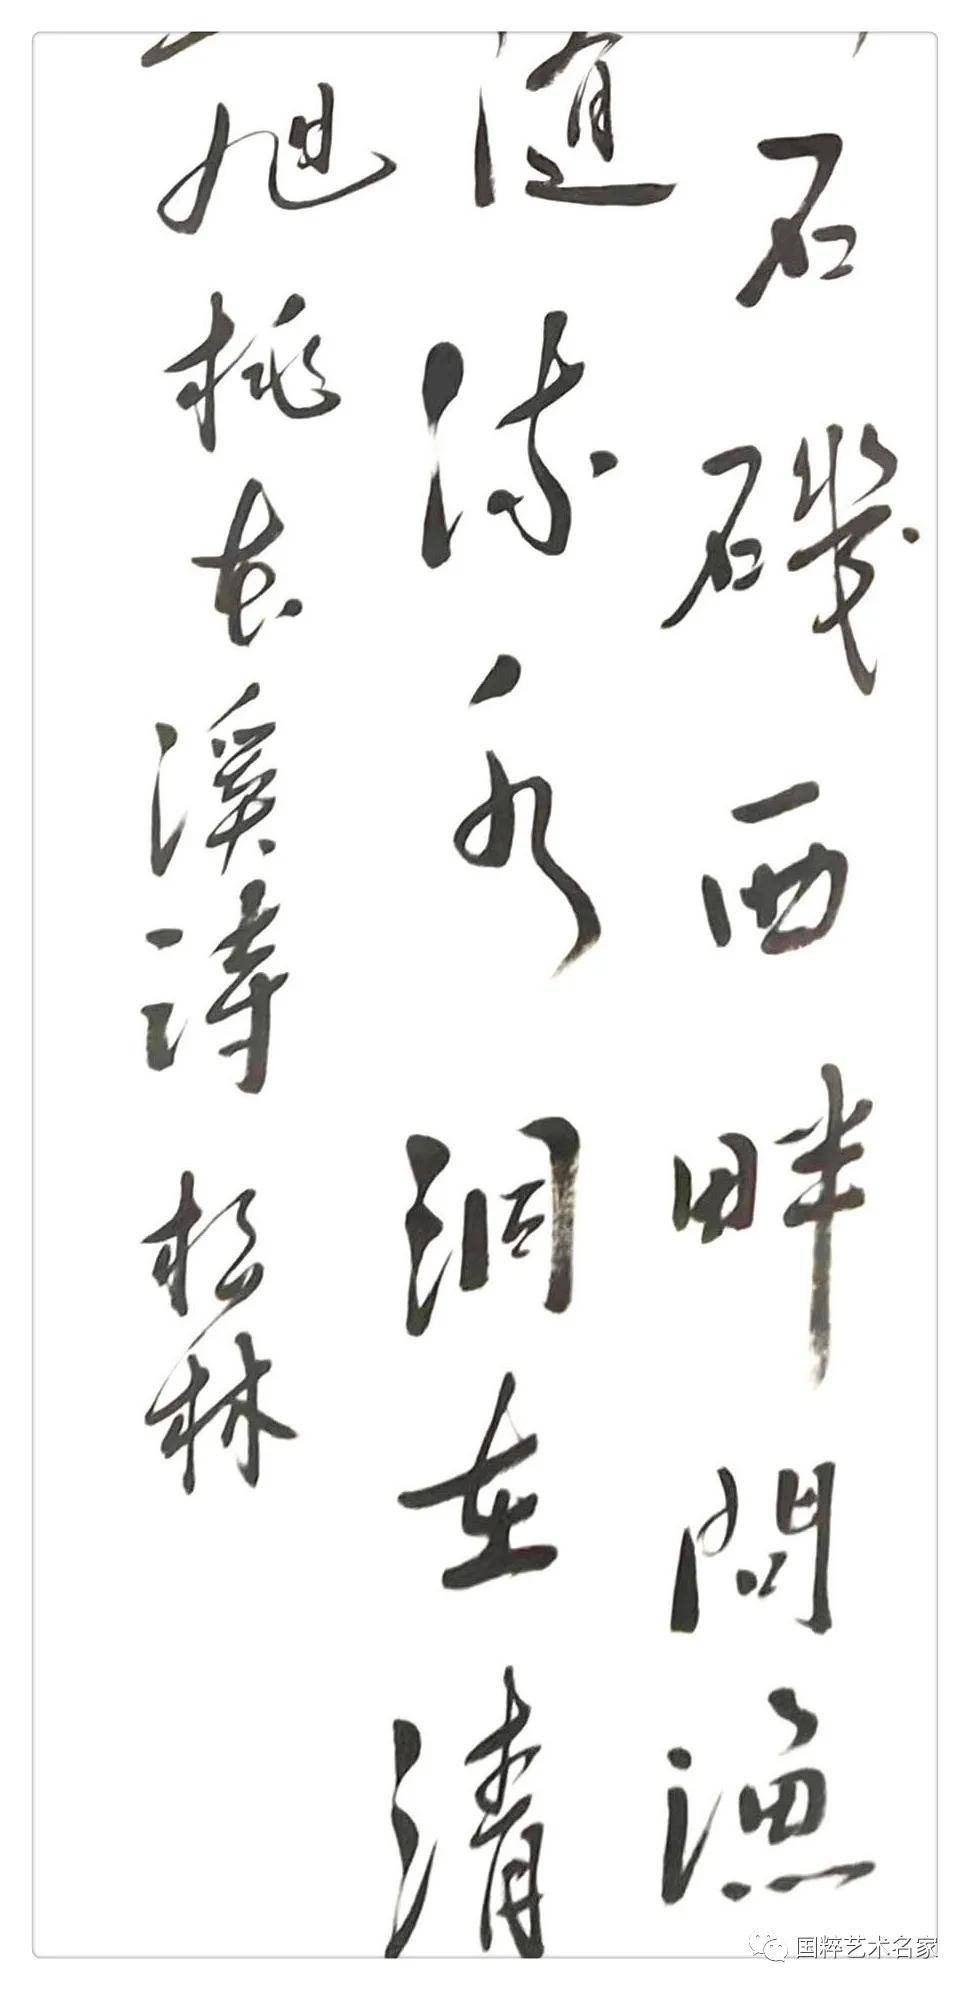 石磯西畔問漁
随流水洞在清
旭桃花溪詩 松林
国粹艺术名家